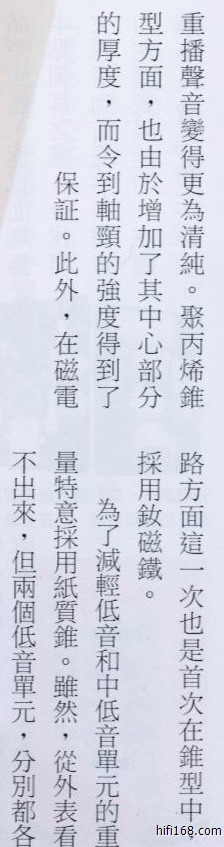 重播聲音變得更為清純。聚丙烯錐
型方面，也由於增加了其中心部分
的厚度，而令到軸頸的強度得到了
保証。此外，在磁電
路方面這一次也是首次在錐型中，
採用釹磁鐵。
為了減輕低音和中低音單元的重
量特意採用紙質錐。雖然，從外表看
不出來，但兩個低音單元，分別都各
hifi168.com